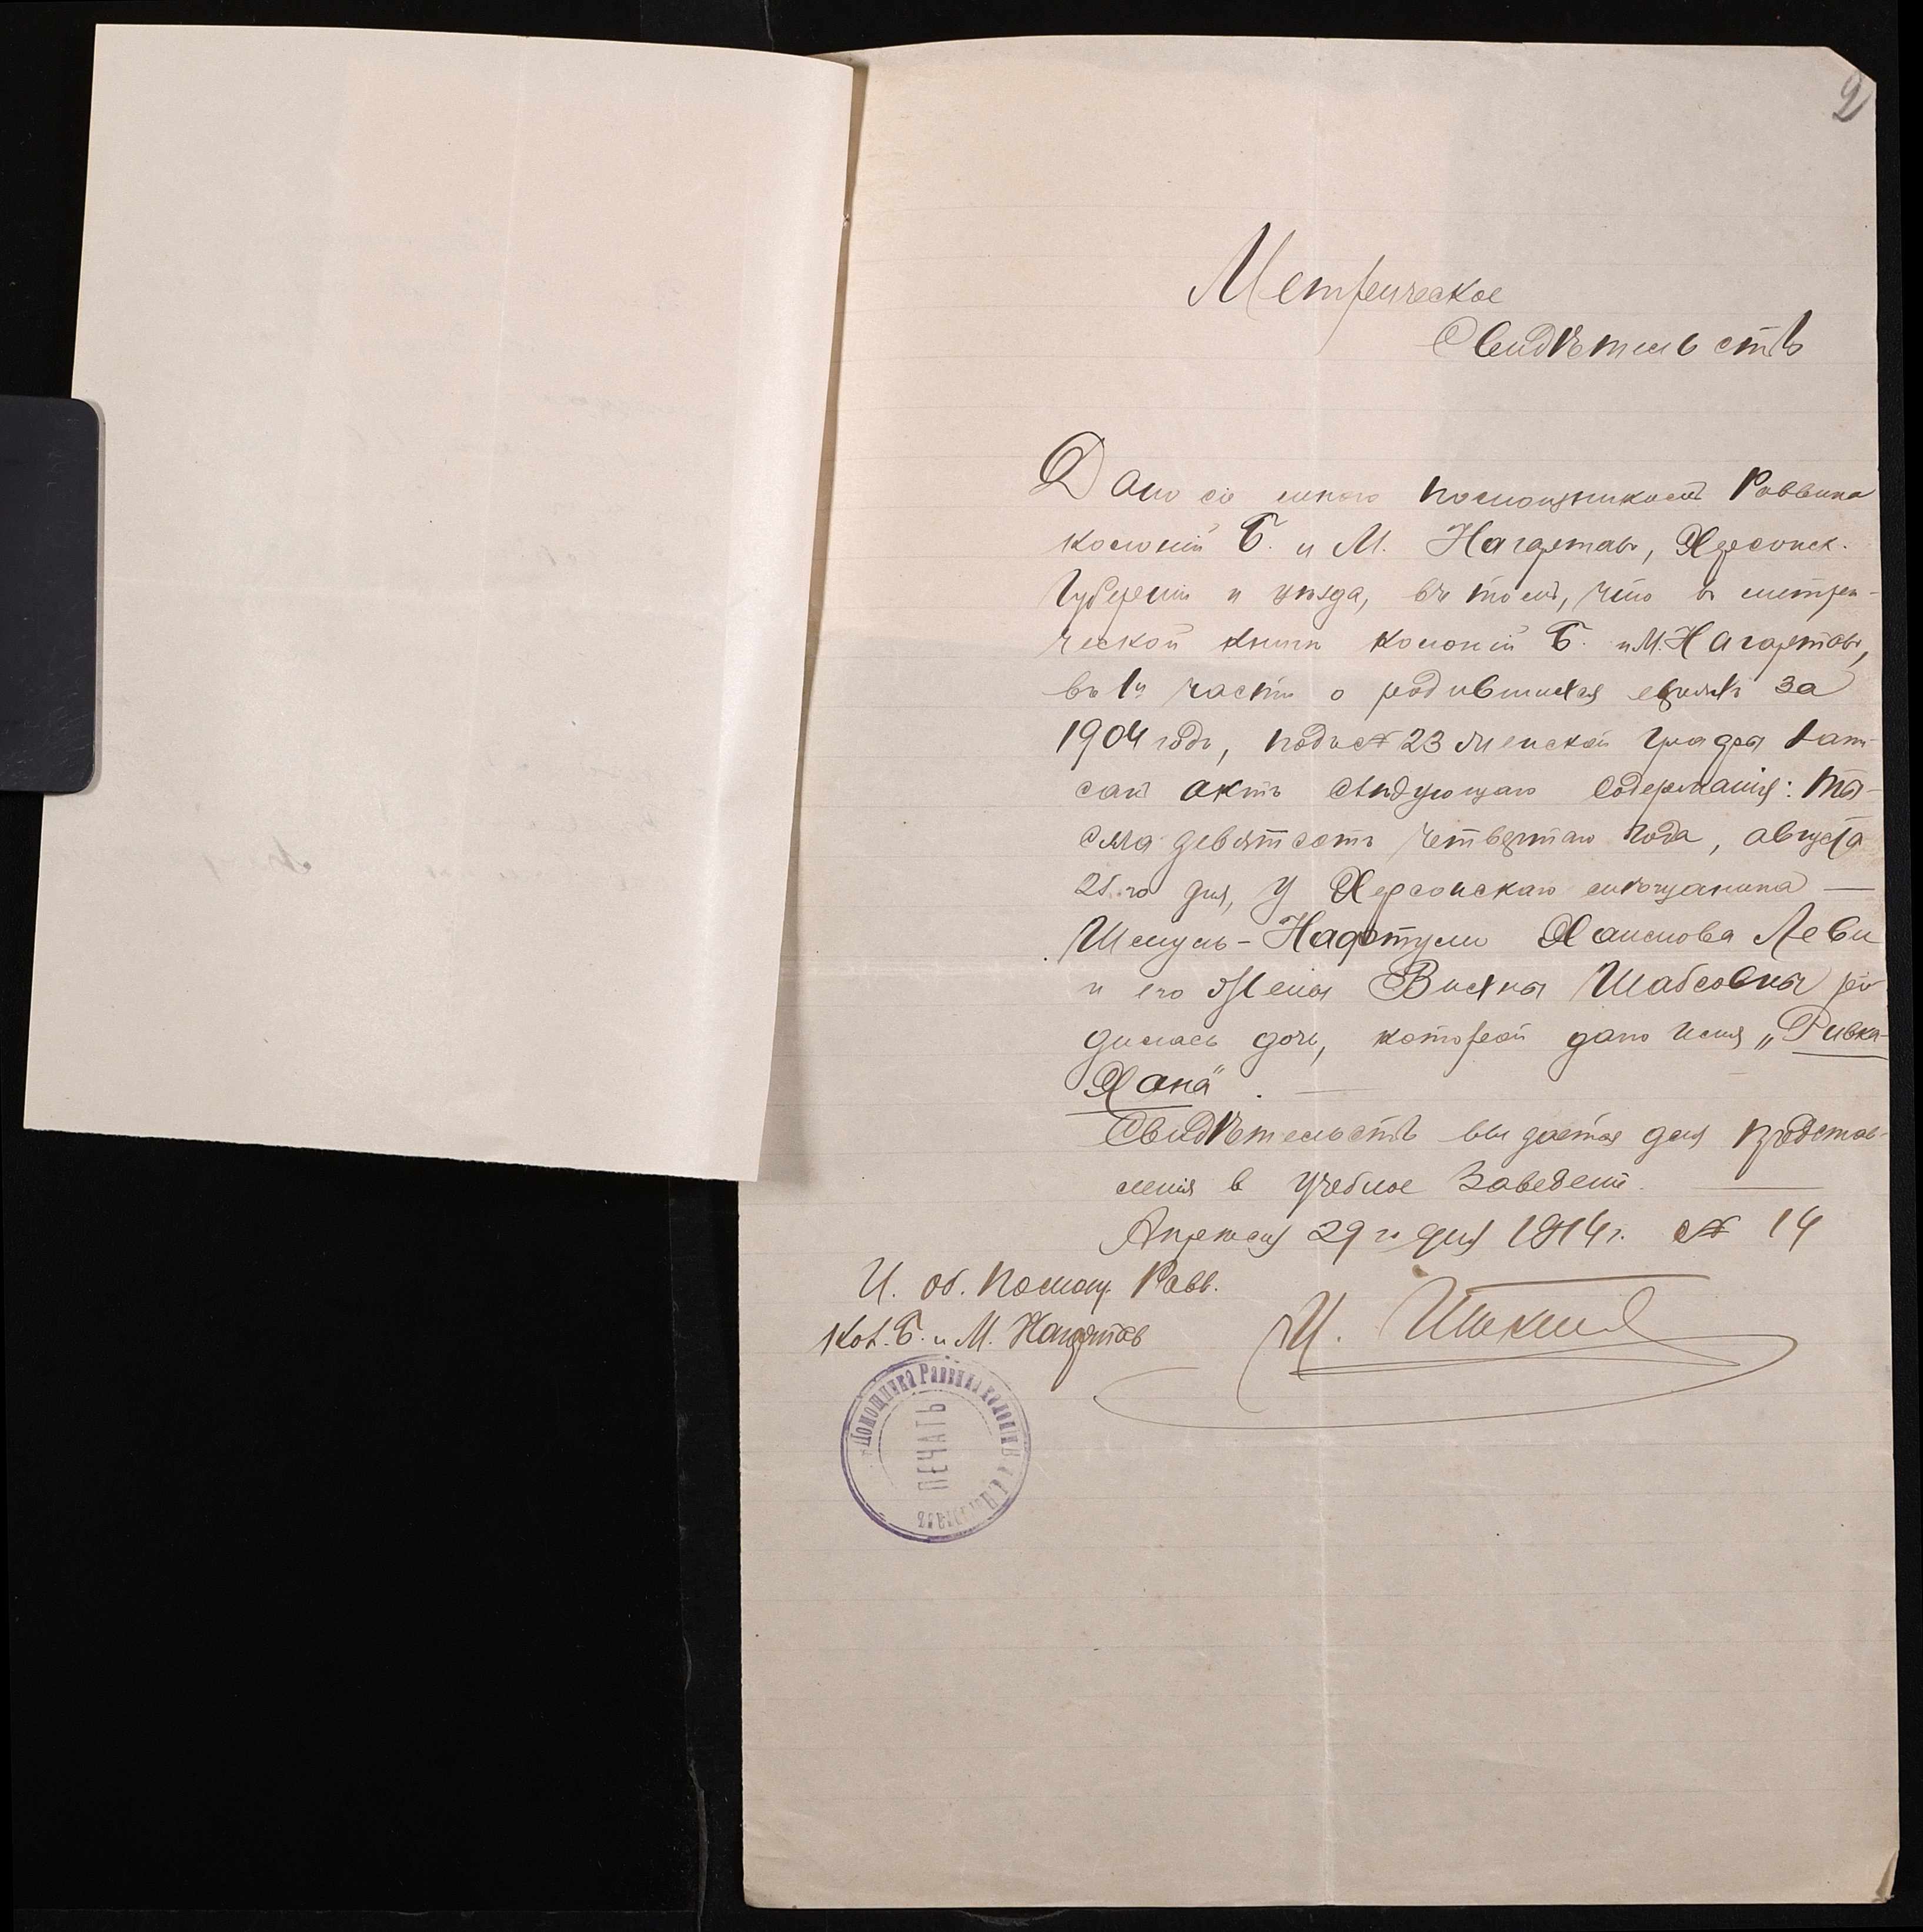 2
Метрическое
Свидѣтельство
Дано сіе мною помощникомъ Раввина
колоній Б. и М. Нагартавъ, Херсонск.
Губерніи и уѣзда, въ томъ, что въ метри-
ческой книгѣ колоній Б. и М. Нагартавъ,
въ 1й части о родившихся евреяхъ за
1904 годъ, подъ № 23 женской графы запи-
санъ актъ слѣдующаго содержанія: Ты-
сяча девятсотъ четвертаго года, августа
25.го дня, у Херсонскаго мѣщанина —
Шмуль-Нафтули Хаимова Леви
и его жены Шабсовны ро
дилась дочь, которой дано имя „Ривка-
Хана“. —
Свидѣтельство выдается для представ-
ленія в учебное заведеніе. —
Апрѣля 29 го дня 1914 г. № 14
И. об. Помощ. Равв.
Кол. Б. и М. Нагартав
И.
Помощника Раввина колоній
ПЕЧАТЬ